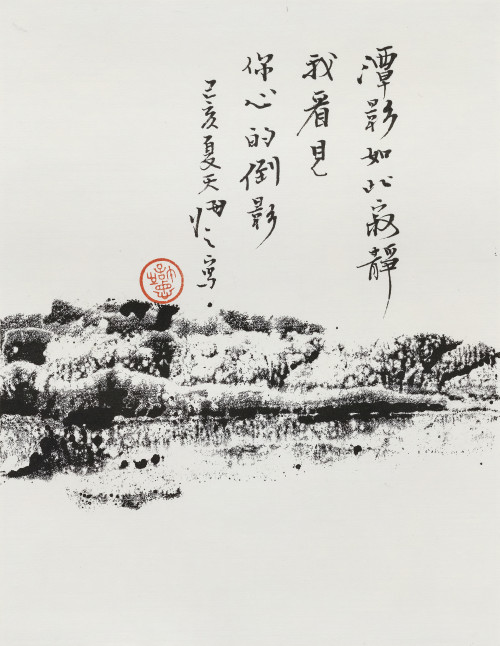 潭影如此寂靜
我看見
你心的倒影
己亥夏天悔之寫。